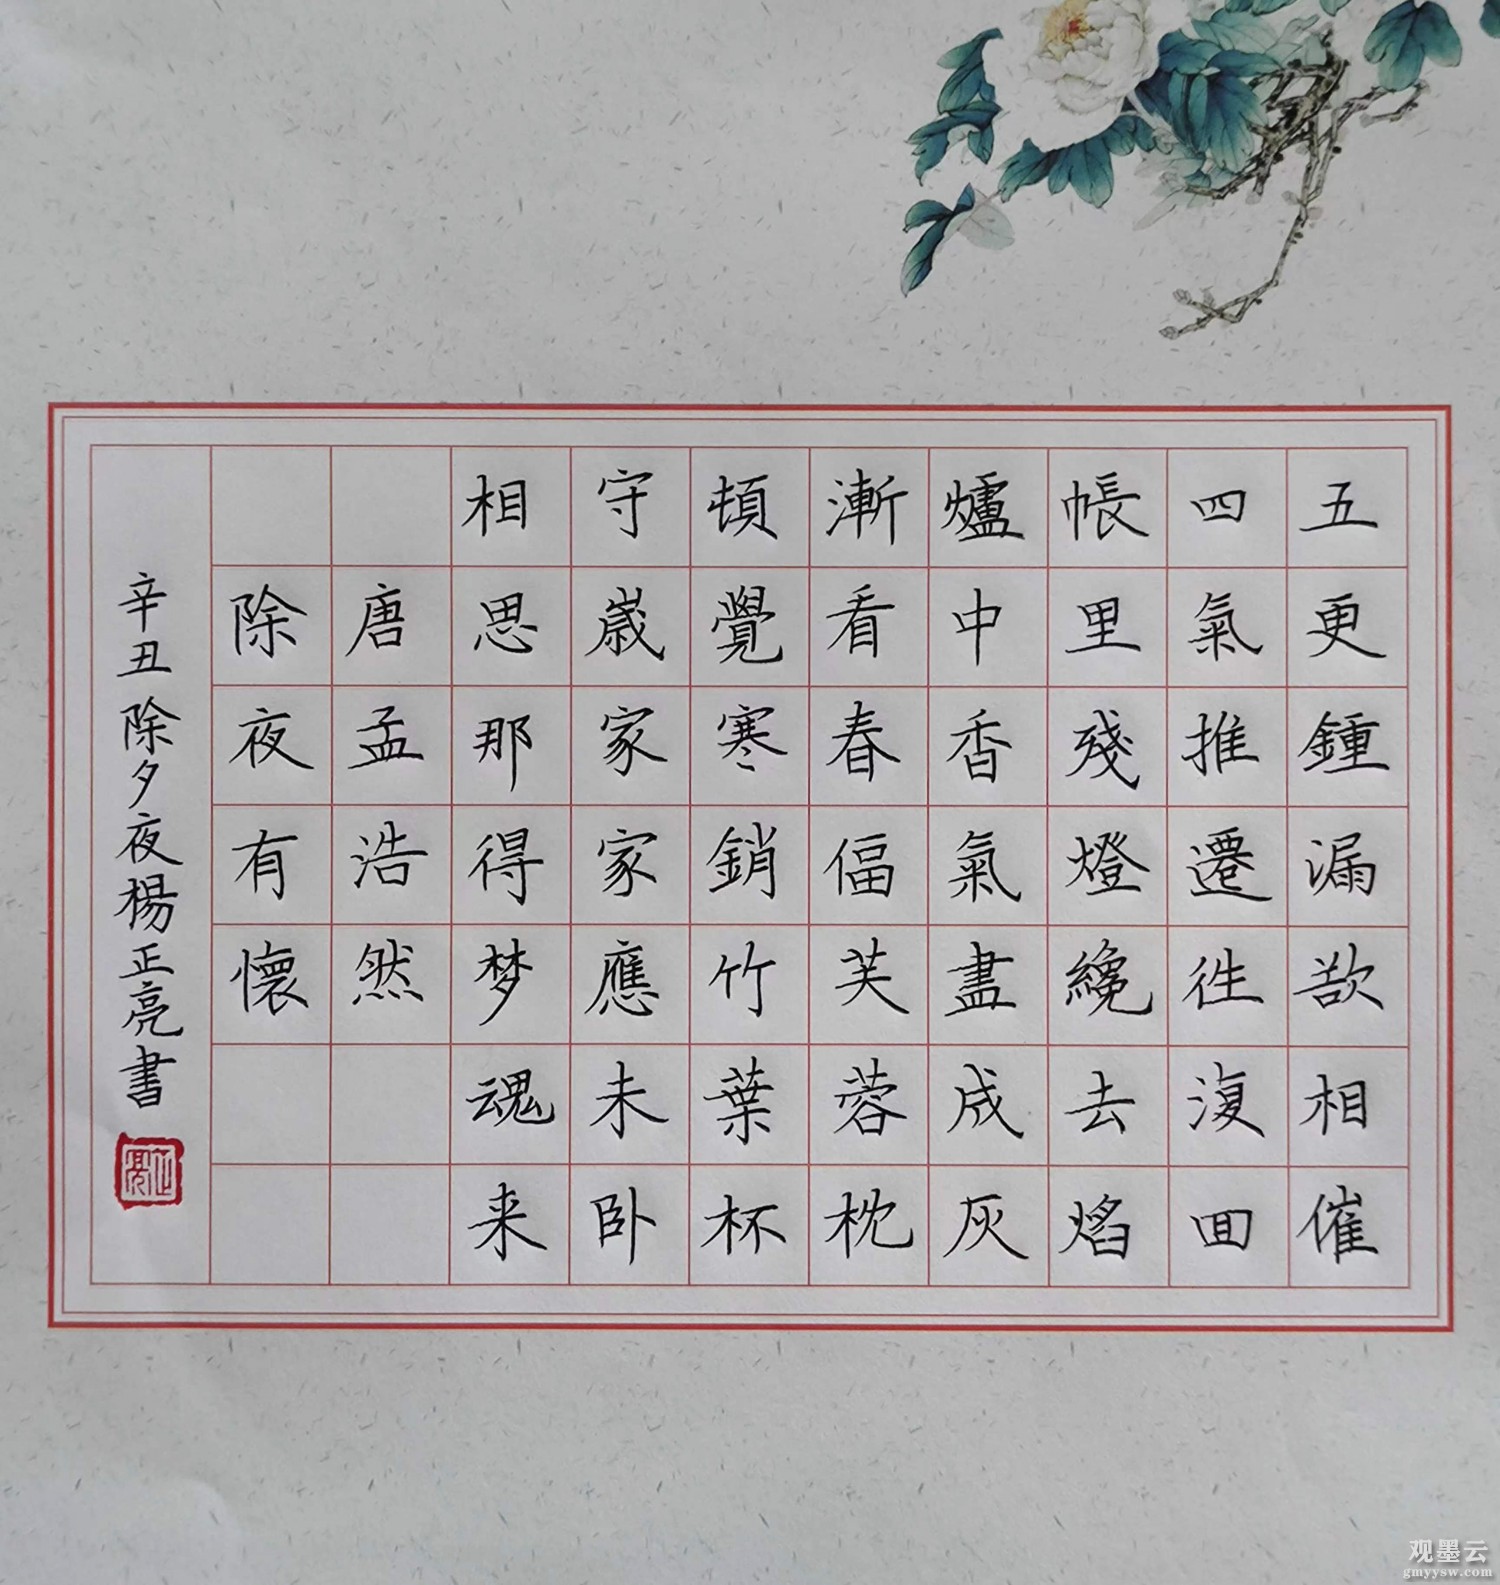 五更鍾漏欲相催
四氣推遷徃復囬
帳里殘燈纔去焰
爐中香氣盡成灰
漸看春偪芙蓉枕
頓覺寒銷竹葉杯
守歲家家應未卧
相思那得梦魂来
唐孟浩然
除夜有懷
辛丑除夕夜楊正亮書
正亮
观墨云
gmyysw.com